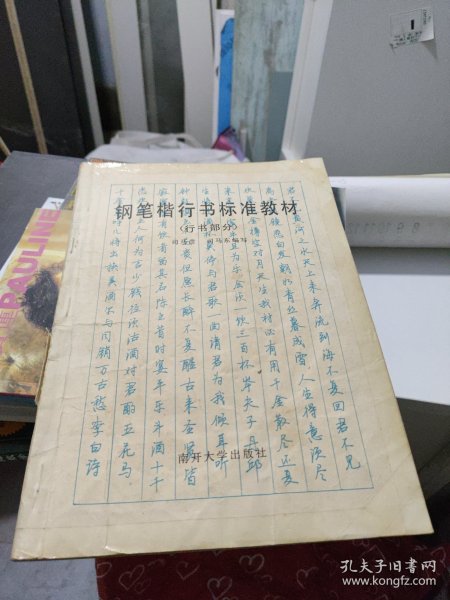 钢笔楷行书标准教材
(行书部分)
司马东编写
君 黄河之水天上来奔流到海不复回君不见
高 悲白发朝如青丝暮成雪人生得意须尽
欢 金樽空对月天生我材必有用千金散尽还复
来 宰 且为乐会须一饮三百杯岑夫子丹邱
生 停与君歌一曲请君为我倾耳听
钟 贵但愿长醉不复醒古来圣贤皆
寂 有饮者留其名陈王昔时宴平乐斗酒十千
恣 人何为言少钱径须沽 对君酌五花马
千金 呼儿将出换美酒尔与同销万古愁李白诗
南开大学出版社
PAULINE
1
孔夫子旧书网
www.kongfz.com